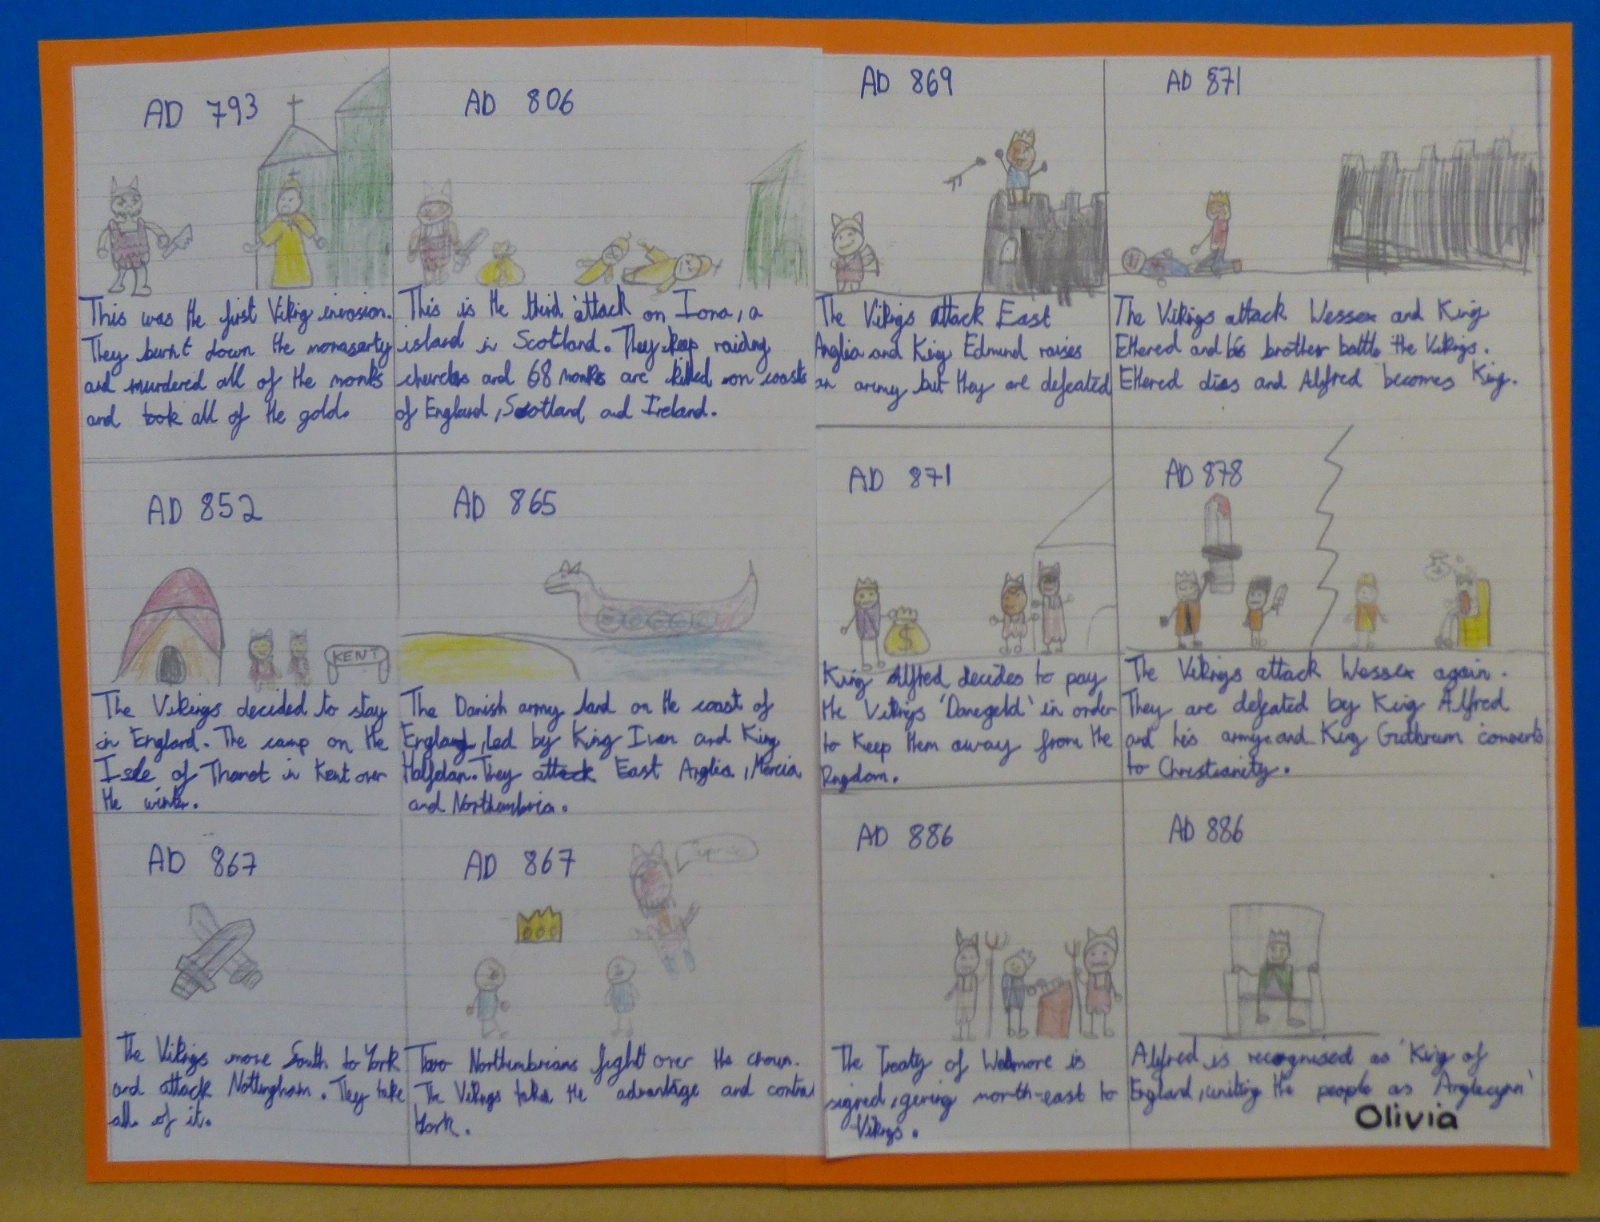 AD 793
This was the first Viking invasion.
They burnt down the monasarty
and murdered all of the monks
and took all of the gold.
AD 806
This is the third attack on Iona, a
island in Scotland. They keep raiding
churches and 68 monks are killed on coasts
of England, Scotland and Ireland.
AD 852
KENT
The Vikings decided to stay
in England. The camp on the
Isle of Thanet in Kent over
the winter.
AD 865
The Danish army land on the coast of
England, led by King Ivan and King
Halfdan. They attack East Anglia, Mercia
and Northumbria.
AD 867
The Vikings move South to York
and attack Nottingham. They take
all of it.
AD 867
Two Northumbrians fight over the crown.
The Vikings take the advantage and control
York.
AD 869
The Vikings attack East
Anglia and King Edmund raises
an army, but they are defeated
AD 871
The Vikings attack Wessex and King
Ethered and his brother battle the Vikings.
Ethered dies and Alfred becomes King.
AD 871
$
King Alfred decides to pay
the Vikings 'Danegeld' in order
to keep them away from the
Kingdom.
AD 878
The Vikings attack Wessex again.
They are defeated by King Alfred
and his army and King Guthrum converts
to Christianity.
AD 886
The Treaty of Wedmore is
signed, giving north-east to
Vikings.
AD 886
Alfred is recognised as 'King of
England, uniting the people as 'Anglecynn'
Olivia